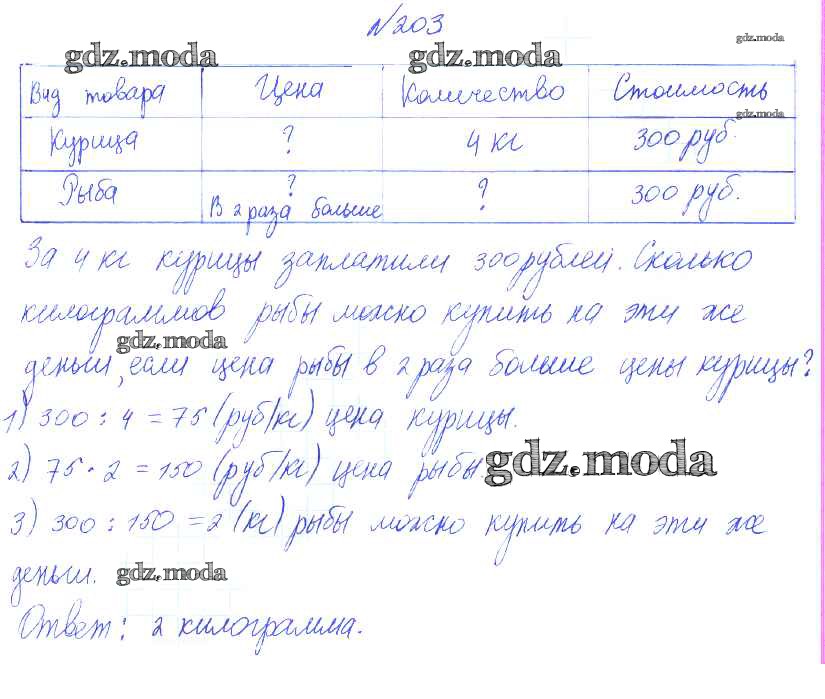 №203
gdz.moda gdz.moda gdz.moda
Вид товара Цена Количество Стоимость
gdz.moda
Курица ? 4 кг 300 руб.
Рыба ? В 2 раза больше ? 300 руб.
За 4 кг курицы заплатили 300 рублей. Сколько
килограммов рыбы можно купить на эти же
gdz.moda
деньги, если цена рыбы в 2 раза больше цены курицы?
1) 300 : 4 = 75 (руб/кг) цена курицы.
2) 75 · 2 = 150 (руб/кг) цена рыбы
gdz.moda
3) 300 : 150 = 2 (кг) рыбы можно купить на эти же
деньги.
gdz.moda
Ответ: 2 килограмма.